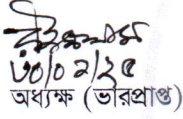 ৩০/০৯/২৫
অধ্যক্ষ (ভারপ্রাপ্ত)